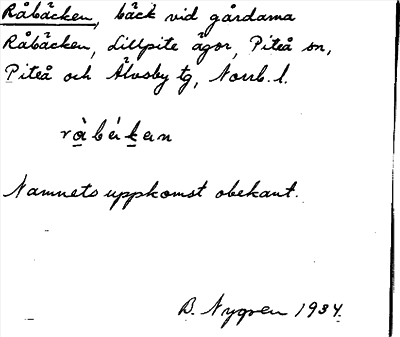 Råbäcken, bäck vid gårdarna
Råbäcken, Lillpite ägor, Piteå sn,
Piteå och Älvsby tg, Norrb. l.
råbäkan
Namnets uppkomst obekant.
B. Nygren 1934.